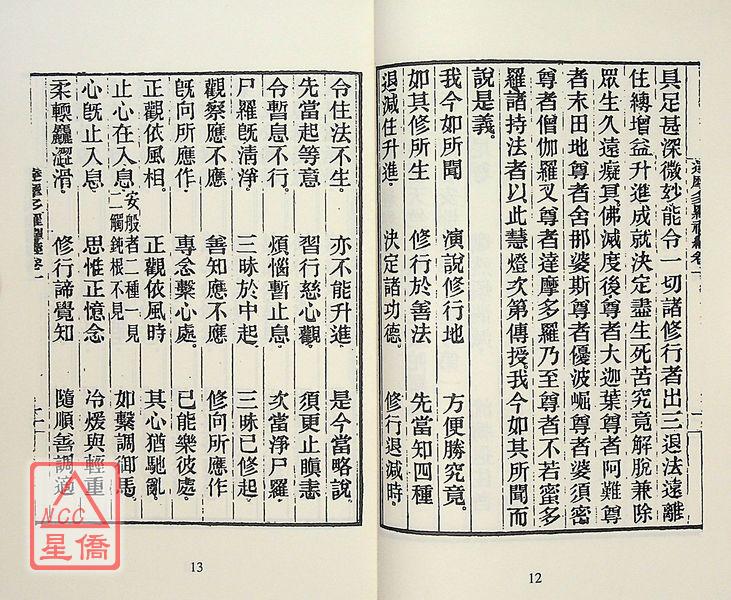 具足甚深微妙能令一切諸修行者出三退法遠離
住縛增益升進成就決定盡生死苦究竟解脫兼除
眾生久遠癡冥佛滅度後尊者大迦葉尊者阿難尊
者末田地尊者舍那婆斯尊者優波崛尊者婆須密
尊者僧伽羅叉尊者達摩多羅乃至尊者不若蜜多
羅諸持法者以此慧燈次第傳授我今如其所聞而
說是義。
我今如所聞 演說修行地 方便勝究竟。
如其修所生 修行於善法 先當知四種
退減住升進。 決定諸功德。 修行退減時。
12
令住法不生。 亦不能升進。 是今當略說。
先當起等意 習行慈心觀。 須更止瞋恚
令暫息不行。 煩惱暫止息。 次當淨尸羅
尸羅旣清淨。 三昧於中起。 三昧已修起。
觀察應不應 善知應不應 修向所應作
旣向所應作。 專念繫心處。 已能樂彼處。
正觀依風相。 正觀依風時 其心猶馳亂。
止心在入息。安般者二種一見二觸鈍根不見 如繫調御馬。
心旣止入息。 思惟正憶念 冷煖與輕重
柔輭麤澀滑。 修行諦覺知 隨順善調適
13
NCC
星僑